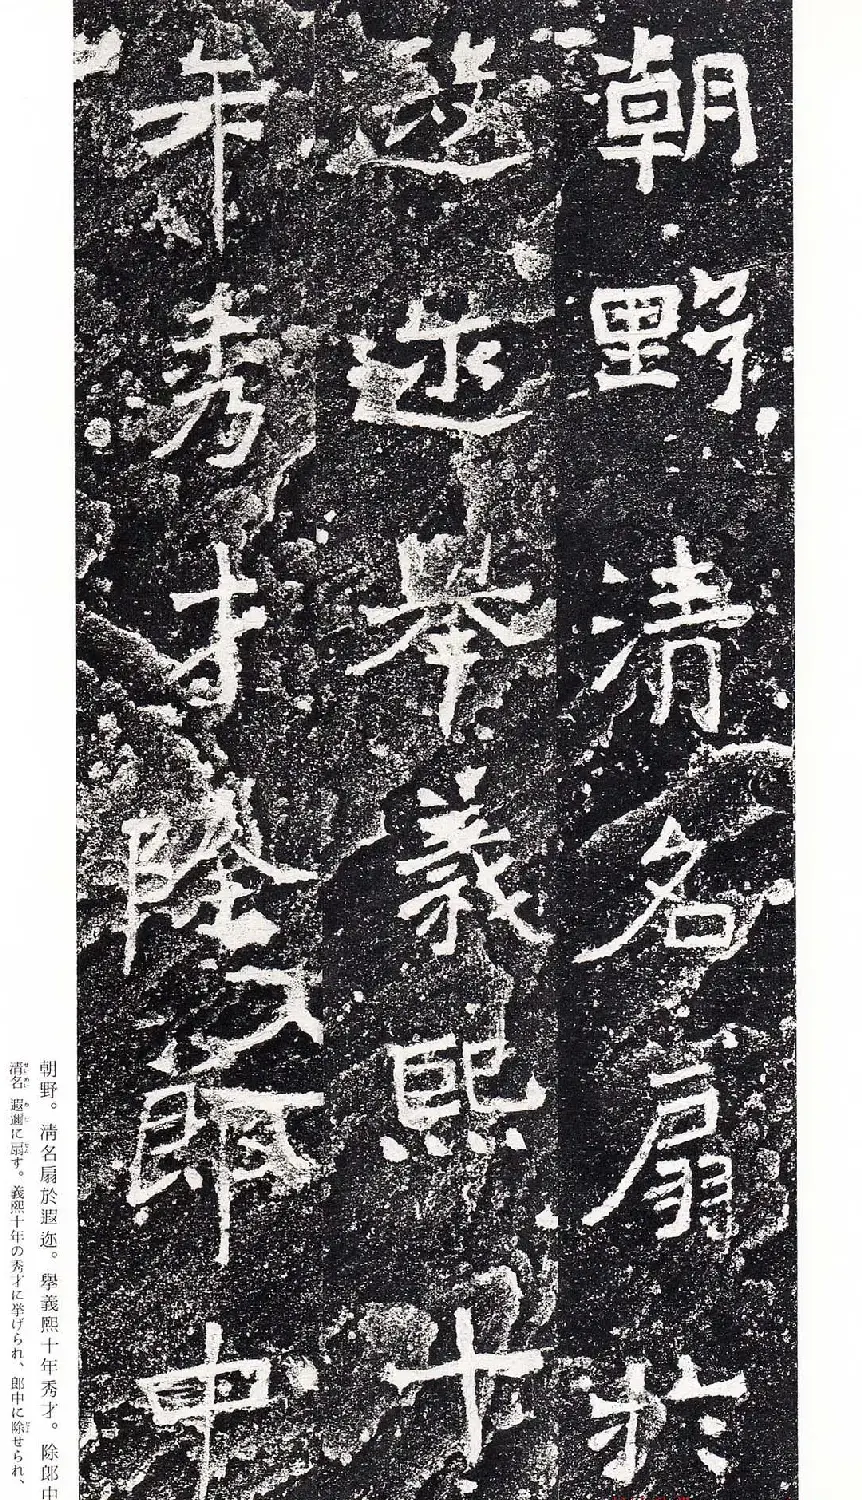 朝野清名扇於
遐迩舉義熙十
年秀才除郎中
朝野。清名扇於遐迩。擧義熙十年秀才。除郎中
清名 遐邇に扇す。義熙十年の秀才に挙げられ、郎中に除せられ、